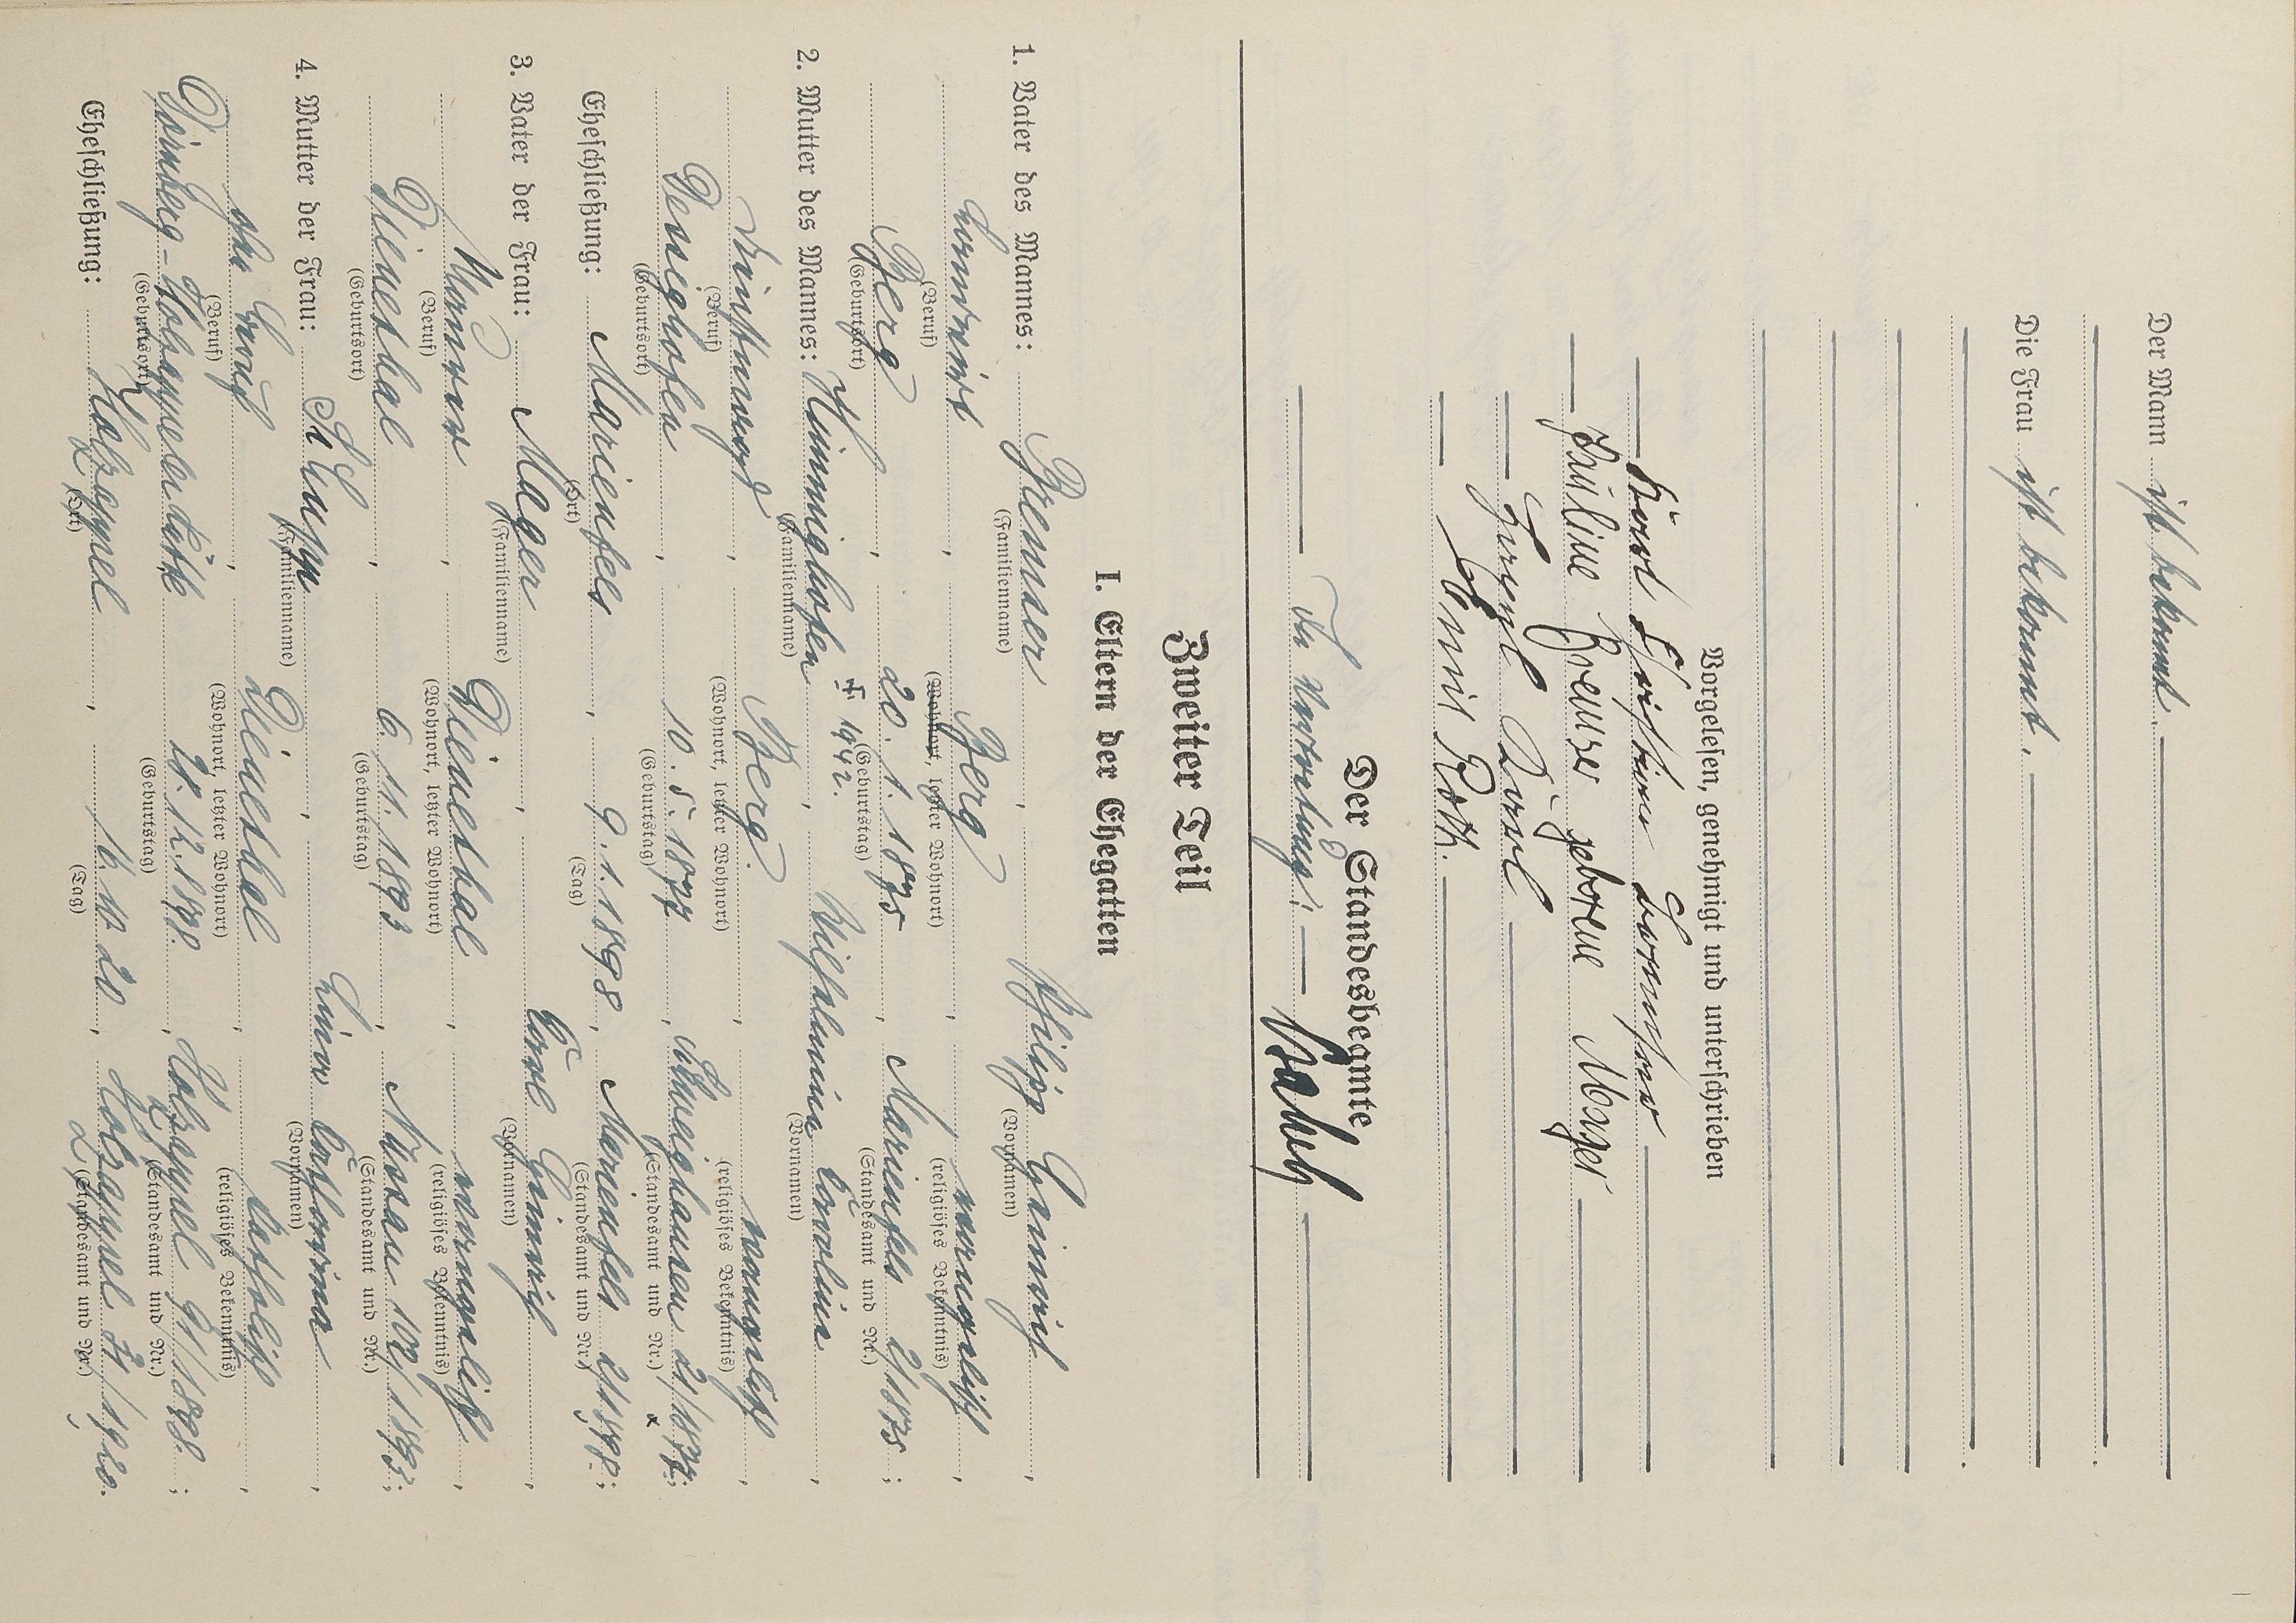 Der Mann ist bekannt.
Die Frau ist bekannt.
Vorgelesen, genehmigt und unterschrieben
Pauline Bremser geborene Mager
Emil Roth.
Der Standesbeamte
In Vertretung:
Zweiter Teil
I. Eltern der Ehegatten
1. Vater des Mannes: Bremser, Philipp Heinrich,
(Familienname) (Vornamen)
Landwirt, Berg, evangelisch,
(Beruf) (Wohnort, letzter Wohnort) (religiöses Bekenntnis)
Berg, 20. 1. 1875, Marienfels 2/1875;
(Geburtsort) (Geburtstag) (Standesamt und Nr.)
2. Mutter des Mannes: Himmighofen + 1942., Wilhelmine Karoline,
(Familienname) (Vornamen)
Berg., evangelisch,
(Beruf) (Wohnort, letzter Wohnort) (religiöses Bekenntnis)
Dessighofen, 10. 5. 1877, 21/1877;
(Geburtsort) (Geburtstag) (Standesamt und Nr.)
Eheschließung: Marienfels, 9. 1. 1898, Marienfels 2/1898;
(Ort) (Tag) (Standesamt und Nr.)
3. Vater der Frau: Mager, Karl Heinrich,
(Familienname) (Vornamen)
Maurer, Dienethal, evangelisch,
(Beruf) (Wohnort, letzter Wohnort) (religiöses Bekenntnis)
Dienethal, 6. 11. 1893, Nassau 102/1893;
(Geburtsort) (Geburtstag) (Standesamt und Nr.)
4. Mutter der Frau: Schupp, Katharina,
(Familienname) (Vornamen)
ohne Beruf, Dienethal, katholisch,
(Beruf) (Wohnort, letzter Wohnort) (religiöses Bekenntnis)
Dörnberg-Holzappelerhütte, 28. 12. 1898., Holzappel 91/1898.;
(Geburtsort) (Geburtstag) (Standesamt und Nr.)
Eheschließung: Holzappel, 16. 10. 20, Holzappel 31/1920.
(Ort) (Tag) (Standesamt und Nr.)